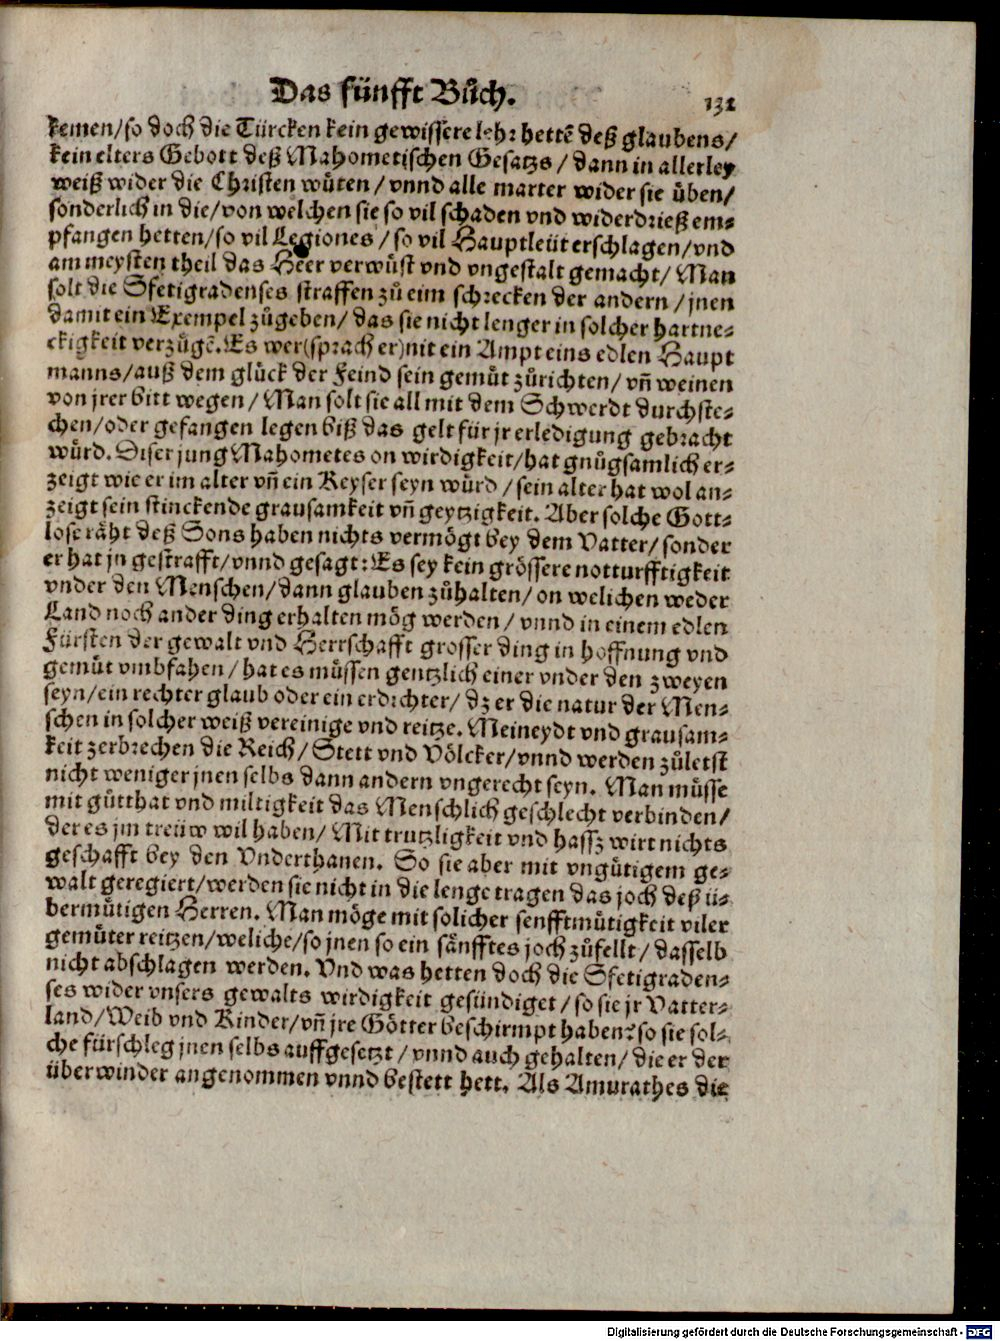 Das fünfft Bůch.
131
kemen/so doch die Türcken kein gewissere lehr hettē deß glaubens/
kein elters Gebott deß Mahometischen Gesatzs/dann in allerley
weiß wider die Christen wüten/vnnd alle marter wider sie üben/
sonderlich in die/von welchen sie so vil schaden vnd widerdrieß em⸗
pfangen hetten/so vil Legiones/so vil Hauptleüt erschlagen/vnd
am meysten theil das Heer verwüst vnd vngestalt gemacht/Man
solt die Sfetigradenses straffen zů eim schrecken der andern/jnen
damit ein Exempel zůgeben/das sie nicht lenger in solcher hartne⸗
ckigkeit verzügē. Es wer(sprach er)nit ein Ampt eins edlen Haupt
manns/auß dem glück der Feind sein gemůt zůrichten/vn̄ weinen
von jrer bitt wegen/Man solt sie all mit dem Schwerdt durchste⸗
chen/oder gefangen legen biß das gelt für jr erledigung gebracht
würd. Diser jung Mahometes on wirdigkeit/hat gnůgsamlich er⸗
zeigt wie er im alter vn̄ ein Keyser seyn würd/sein alter hat wol an⸗
zeigt sein stinckende grausamkeit vn̄ geytzigkeit. Aber solche Gott⸗
lose räht deß Sons haben nichts vermögt bey dem Vatter/sonder
er hat jn gestrafft/vnnd gesagt: Es sey kein grössere notturfftigkeit
vnder den Menschen/dann glauben zůhalten/on welichen weder
Land noch ander ding erhalten mög werden/vnnd in einem edlen
Fürsten der gewalt vnd Herrschafft grosser ding in hoffnung vnd
gemůt vmbfahen/hat es müssen gentzlich einer vnder den zweyen
seyn/ein rechter glaub oder ein erdichter/dz er die natur der Men⸗
schen in solcher weiß vereinige vnd reitze. Meineydt vnd grausam⸗
keit zerbrechen die Reich/Stett vnd Völcker/vnnd werden zůletst
nicht weniger jnen selbs dann andern vngerecht seyn. Man müsse
mit gůtthat vnd miltigkeit das Menschlich geschlecht verbinden/
der es jm treüw wil haben/Mit trutzligkeit vnd hassz wirt nichts
geschafft bey den Vnderthanen. So sie aber mit vngütigem ge⸗
walt geregiert/werden sie nicht in die lenge tragen das joch deß ü⸗
bermůtigen Herren. Man möge mit solicher senfftmůtigkeit viler
gemüter reitzen/weliche/so jnen so ein sänfftes joch zůfellt/dasselb
nicht abschlagen werden. Vnd was hetten doch die Sfetigraden⸗
ses wider vnsers gewalts wirdigkeit gesündiget/so sie jr Vatter⸗
land/Weib vnd Kinder/vn̄ jre Götter beschirmpt haben? so sie sol⸗
che fürschleg jnen selbs auffgesetzt/vnnd auch gehalten/die er der
überwinder angenommen vnnd bestett hett. Als Amurathes die
Digitalisierung gefördert durch die Deutsche Forschungsgemeinschaft - DFG